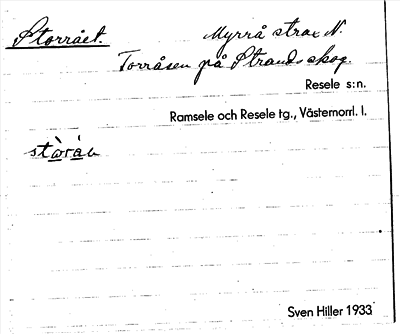 Storrået. Myrrå strax N.
Torråsen på Strands skog.
Resele s:n.
Ramsele och Resele tg., Västernorrl. l.
Sven Hiller 1933